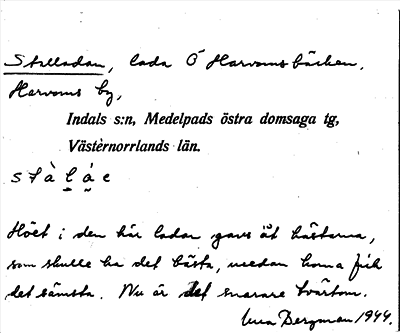 Stalladan, lada Ö Harvomsbäcken,
Harvoms by,
Indals s:n, Medelpads östra domsaga tg,
Västernorrlands län.
Höet i den här ladan gavs åt hästarna,
som skulle ha det bästa, medan korna fick
det sämsta. Nu är det snarare tvärtom.
Bergman 1944.